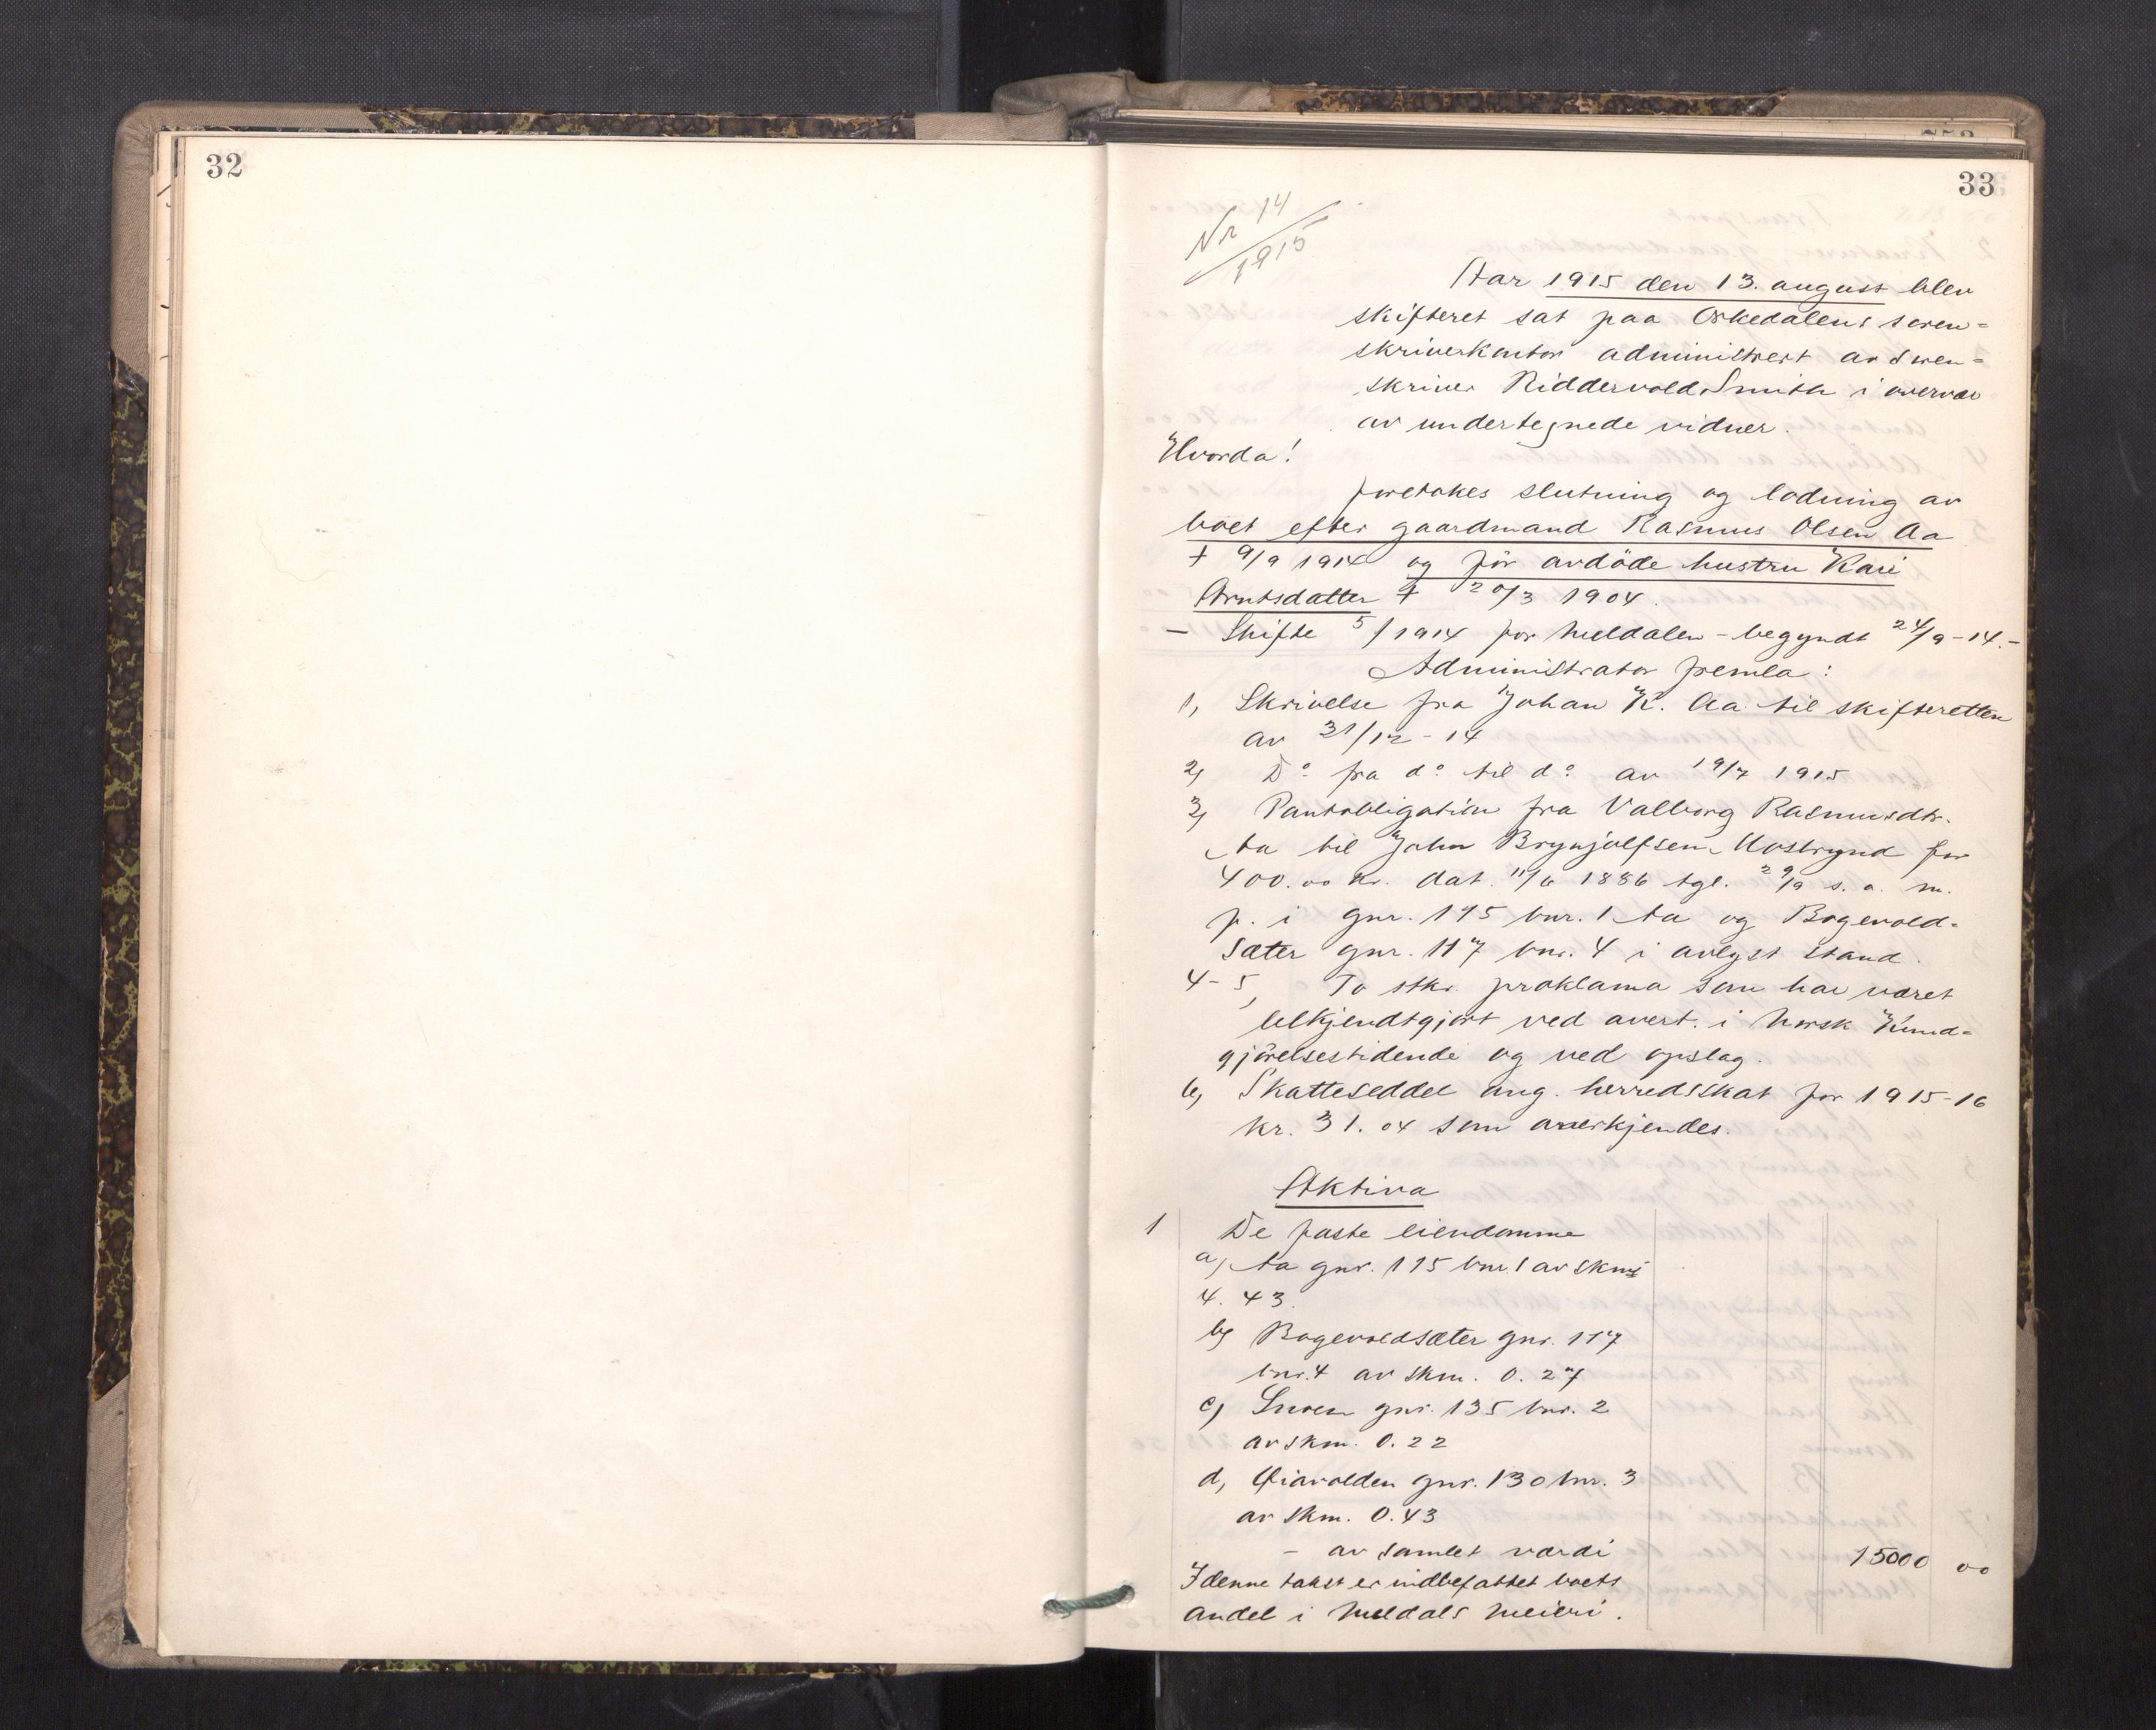 32
33
Nr 14
1915
Aar 1915 den 13. august blev
skifteret sat paa Orkedalens soren-
skriverkontor administrert av soren-
skriver Riddervold Smith i overvær
av undertegnede vidner.
Hvorda!
foretokes slutning og lodning av
boet efter gaardmand Rasmus Olsen Aa
† 9/9 1914 og før avdöde hustru Kari
Arntsdatter † 20/3 1904.
- Skifte 5/1914 for Meldalen - begyndt 24/9-14.-
Administrator fremla:
1, Skrivelse fra Johan K. Aa til skifteretten
av 31/12-14
2, Do fra do til do av 19/7 1915
3, Pantobligation fra Valborg Rasmusdtr.
Aa til John Brynjolfsen for
400.00 kr. dat. 11/6 1886 tgl. 29/9 s. a. m.
p. i gnr. 115 bnr. 1 Aa og Bogevold-
sæter gnr. 117 bnr. 4 i avlyst stand.
4-5, To stkr. proklama som har været
bekjendtgjort ved avert. i Norsk Kund-
gjörelsestidende og ved opslag.
6, Skatteseddel ang. herredsskat for 1915-16
kr. 31.04 som anerkjendes.
Aktiva
1 De faste eiendomme
a, Aa gnr. 115 bnr. 1 av skm
4.43.
b, Bogevoldsæter gnr. 117
bnr. 4 av skm. 0.27
c, Snoen gnr. 135 bnr. 2
av skm. 0.22
d, Øiavolden gnr. 130 bnr. 3
av skm. 0.43
- av samlet værdi 15000 00
I denne takst er indbefattet boets
andel i Meldals Meieri.